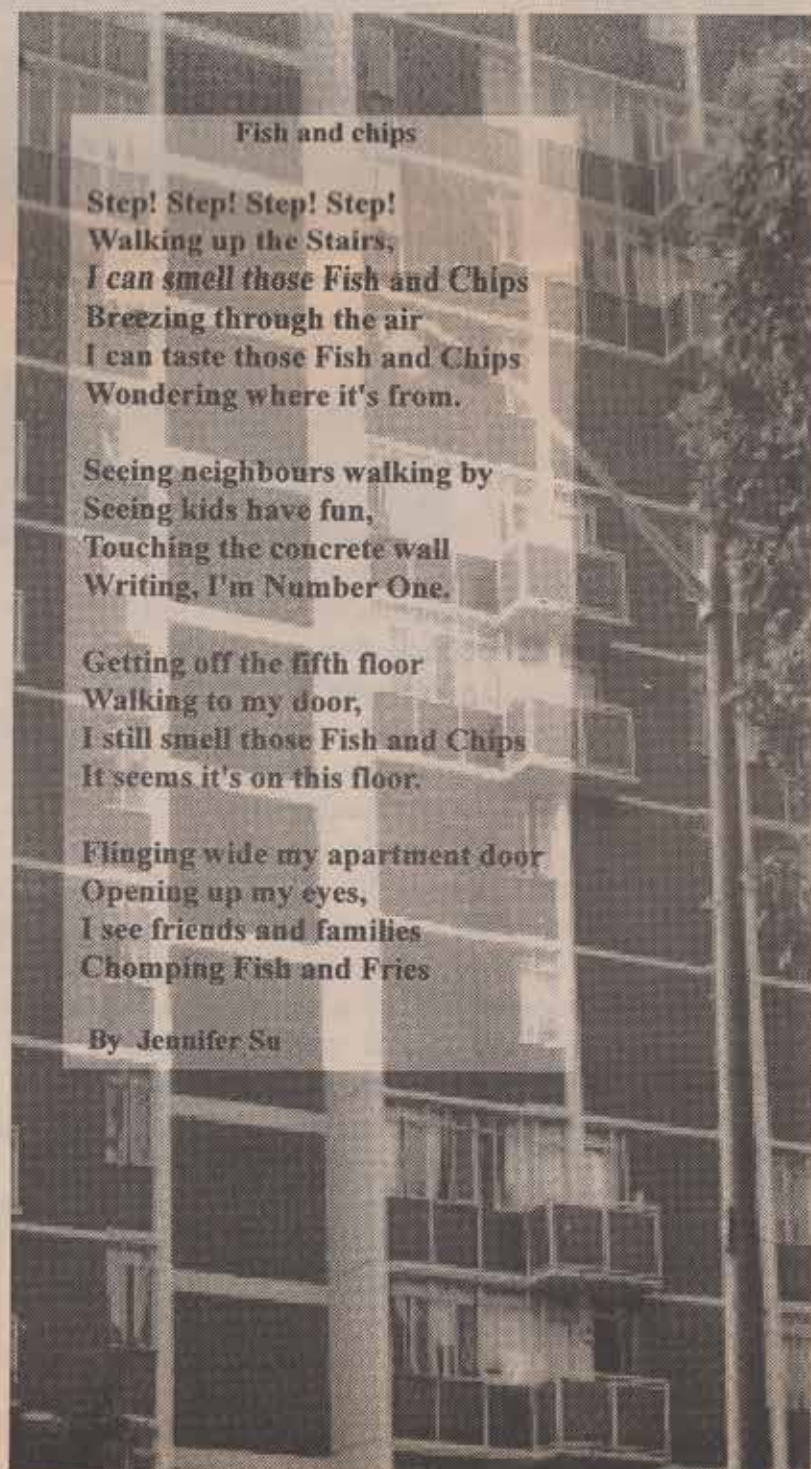 Fish and chips
Step! Step! Step! Step!
Walking up the Stairs,
I can smell those Fish and Chips
Breezing through the air
I can taste those Fish and Chips
Wondering where it's from.
Seeing neighbours walking by
Seeing kids have fun,
Touching the concrete wall
Writing, I'm Number One.
Getting off the fifth floor
Walking to my door,
I still smell those Fish and Chips
It seems it's on this floor.
Flinging wide my apartment door
Opening up my eyes,
I see friends and families
Chomping Fish and Fries
By Jennifer Su